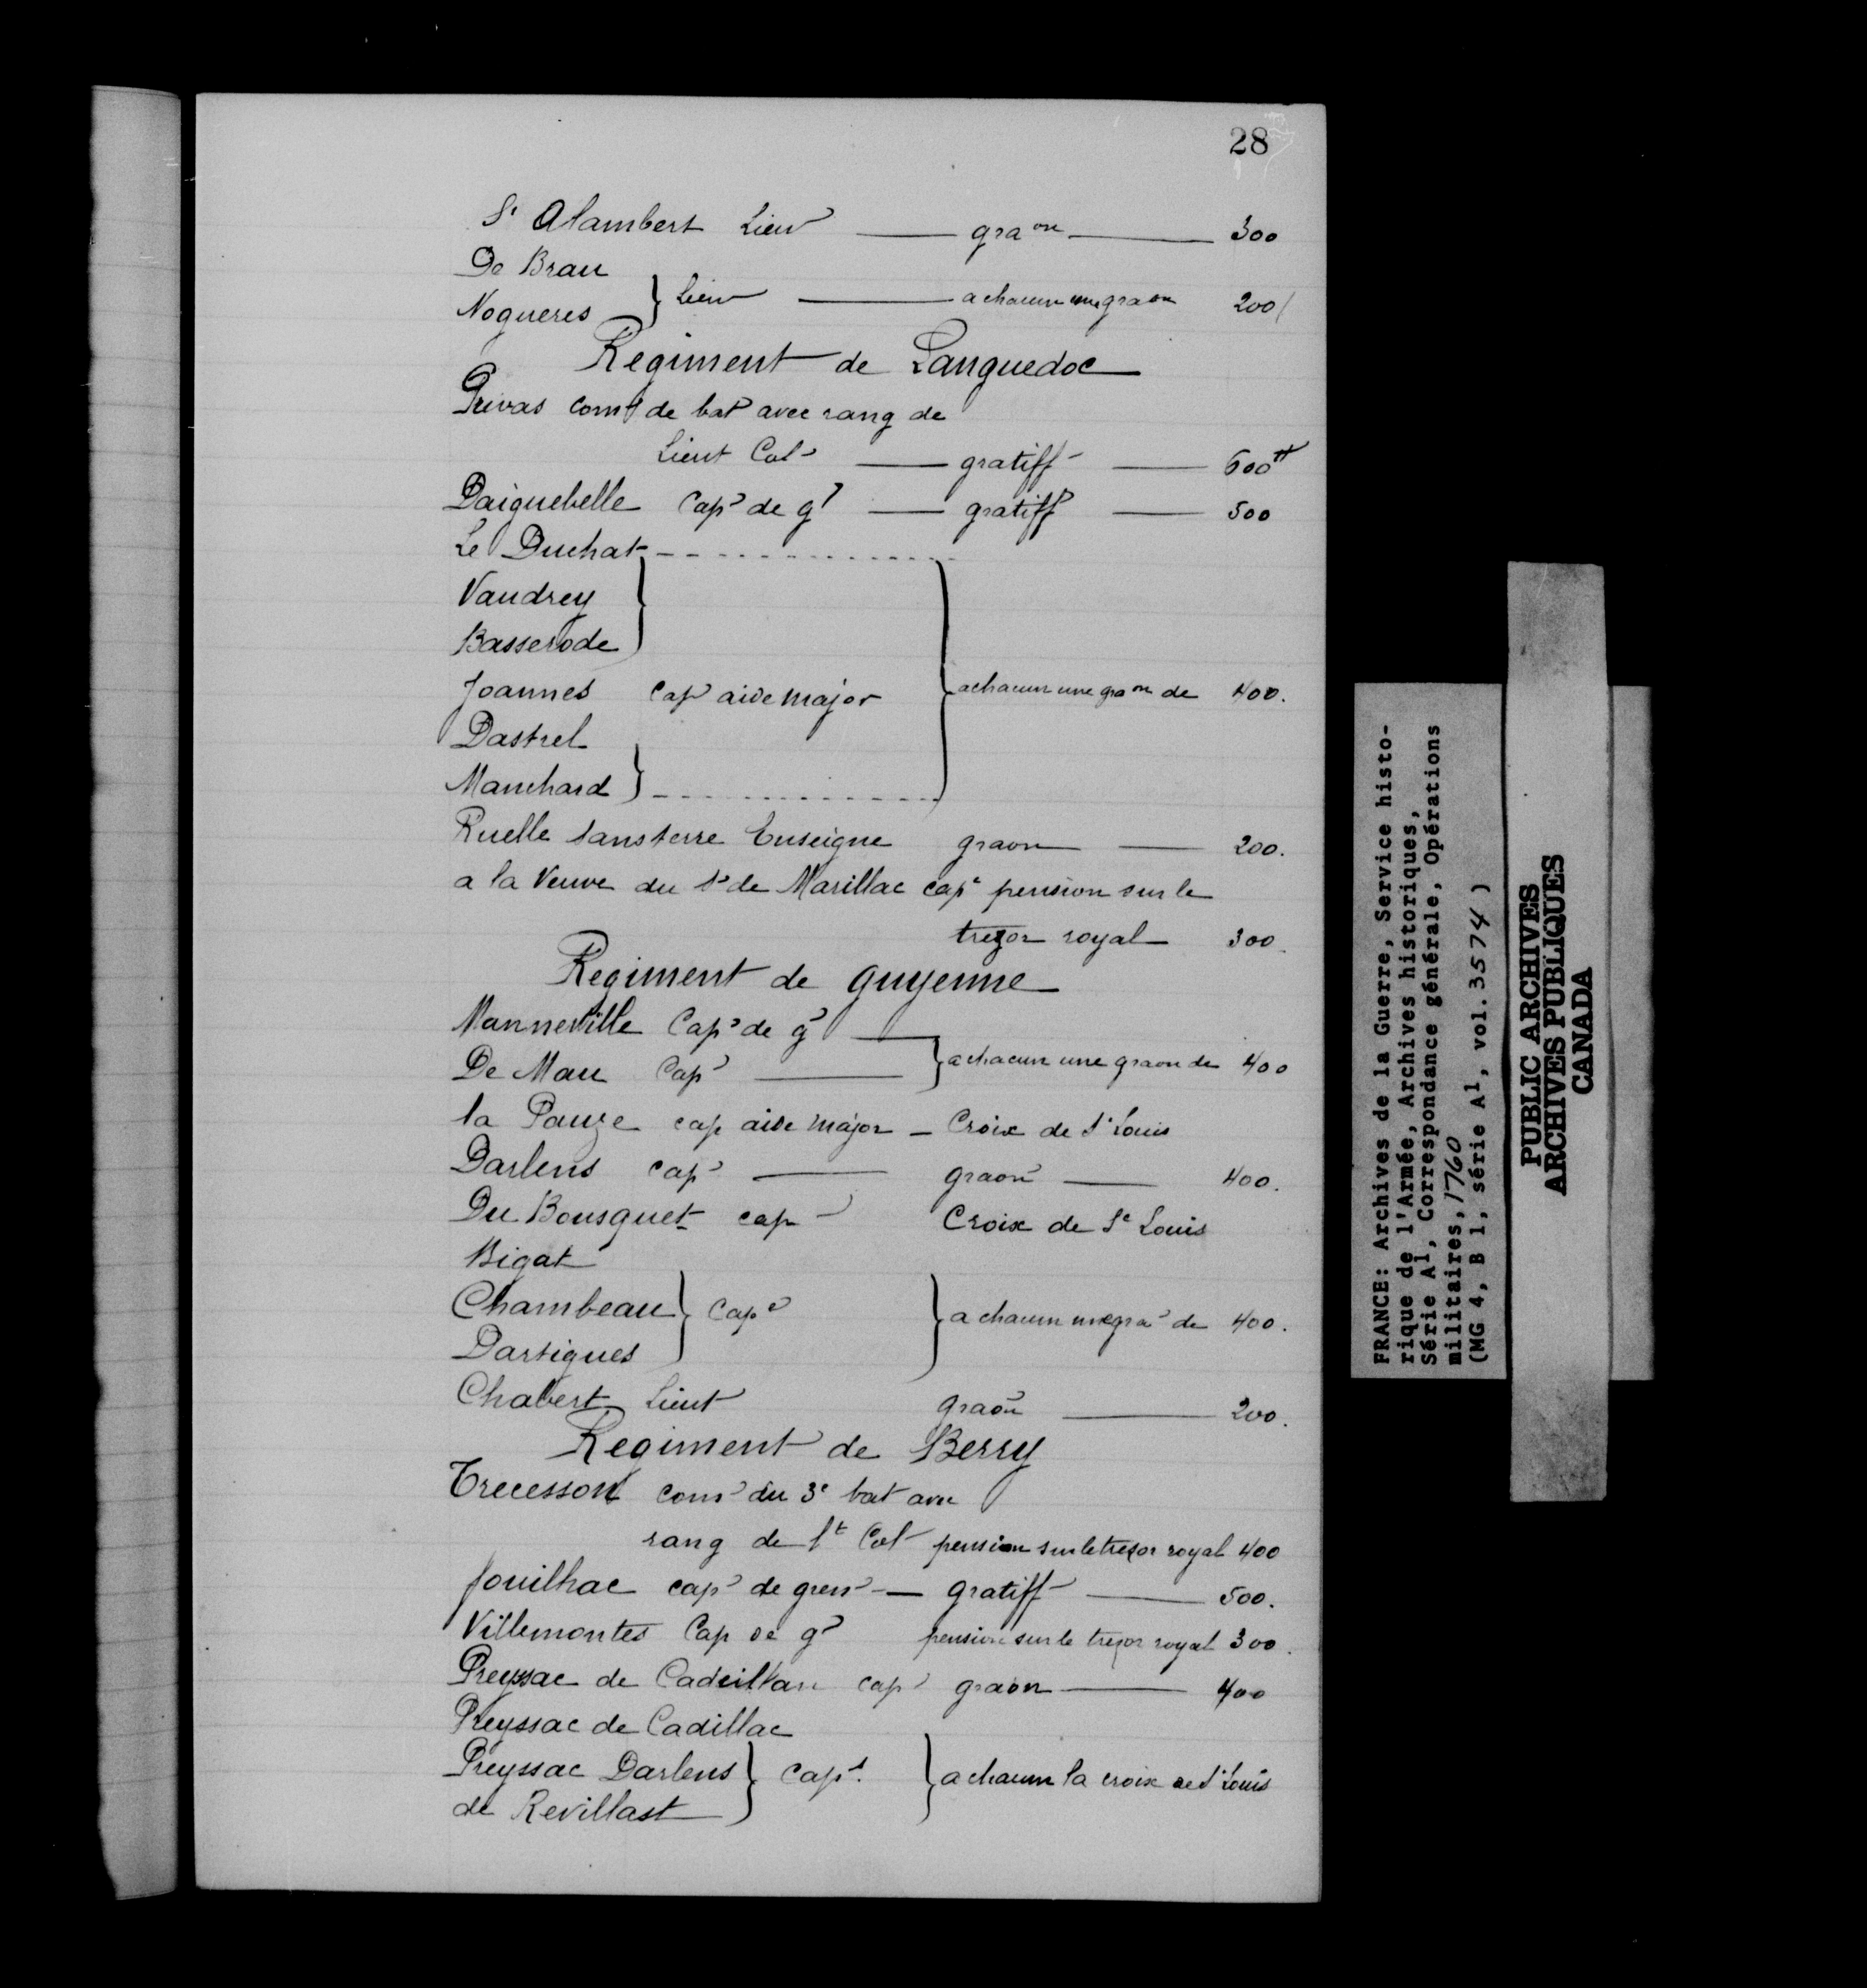 28
St Alambert Lieut — graon — 300
De Brau
Nogueres } Lieut — a chacun une graon 200
Regiment de Languedoc
Privas comt de bat avec rang de
Lieut Col — gratiff — 600#
Daiguebelle Cap de g — gratiff — 500
Le Duchat
Vaudrey
Basserode
Joannes Cap aide major } a chacun une graon de 400.
Dastrel
Manchard
Ruelle Sansterre Enseigne graon — 200.
a la Veuve du Sr de Marillac cape pension sur le
trezor royal 300.
Regiment de guyenne
Manneville Cap de g —
De Mau Cap — } a chacun une graon de 400
la Pauze cap aide major — Croix de St Louis
Darlens cap — graon — 400.
Du Bousquet cap — Croix de St Louis
Bigat
Chambeau } Cape } a chacun une gra de 400.
Dartigues
Chabert Lieut graon — 200.
Regiment de Berry
Trecesson com du 3e bat avec
rang de lt Col pension sur le trezor royal 400
Jouilhac cap de gren — gratiff — 500.
Villemontes Cap de g pension sur le trezor royal 300.
Preyssac de Cadeillan cap graon — 400
Preyssac de Cadillac
Preyssac Darlens } Caps. } a chacun la croix de St Louis
de Revillast
FRANCE: Archives de la Guerre, Service histo-
rique de l'Armée, Archives historiques,
Série A1, Correspondance générale, Opérations
militaires, 1760
(MG 4, B 1, série A1, vol. 3574)
PUBLIC ARCHIVES
ARCHIVES PUBLIQUES
CANADA